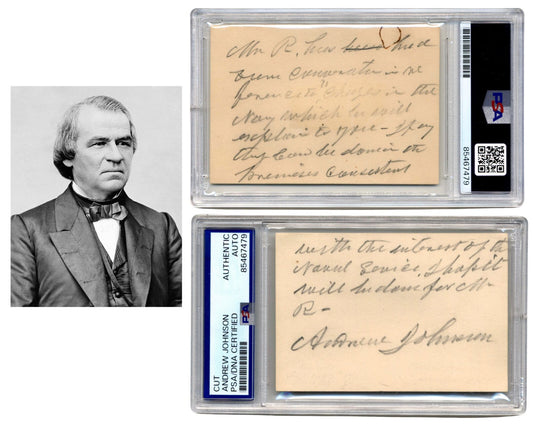 Mr R. has been had
some conversation in re
ference to "Ships in the
Navy which he will
explain to you – If any
thing can be done in the
premises consistent
PSA
85467479
with the interest of the
Naval Service, I hope it
will be done for Mr
R–
Andrew Johnson
CUT
ANDREW JOHNSON
PSA/DNA CERTIFIED
AUTHENTIC
AUTO
85467479